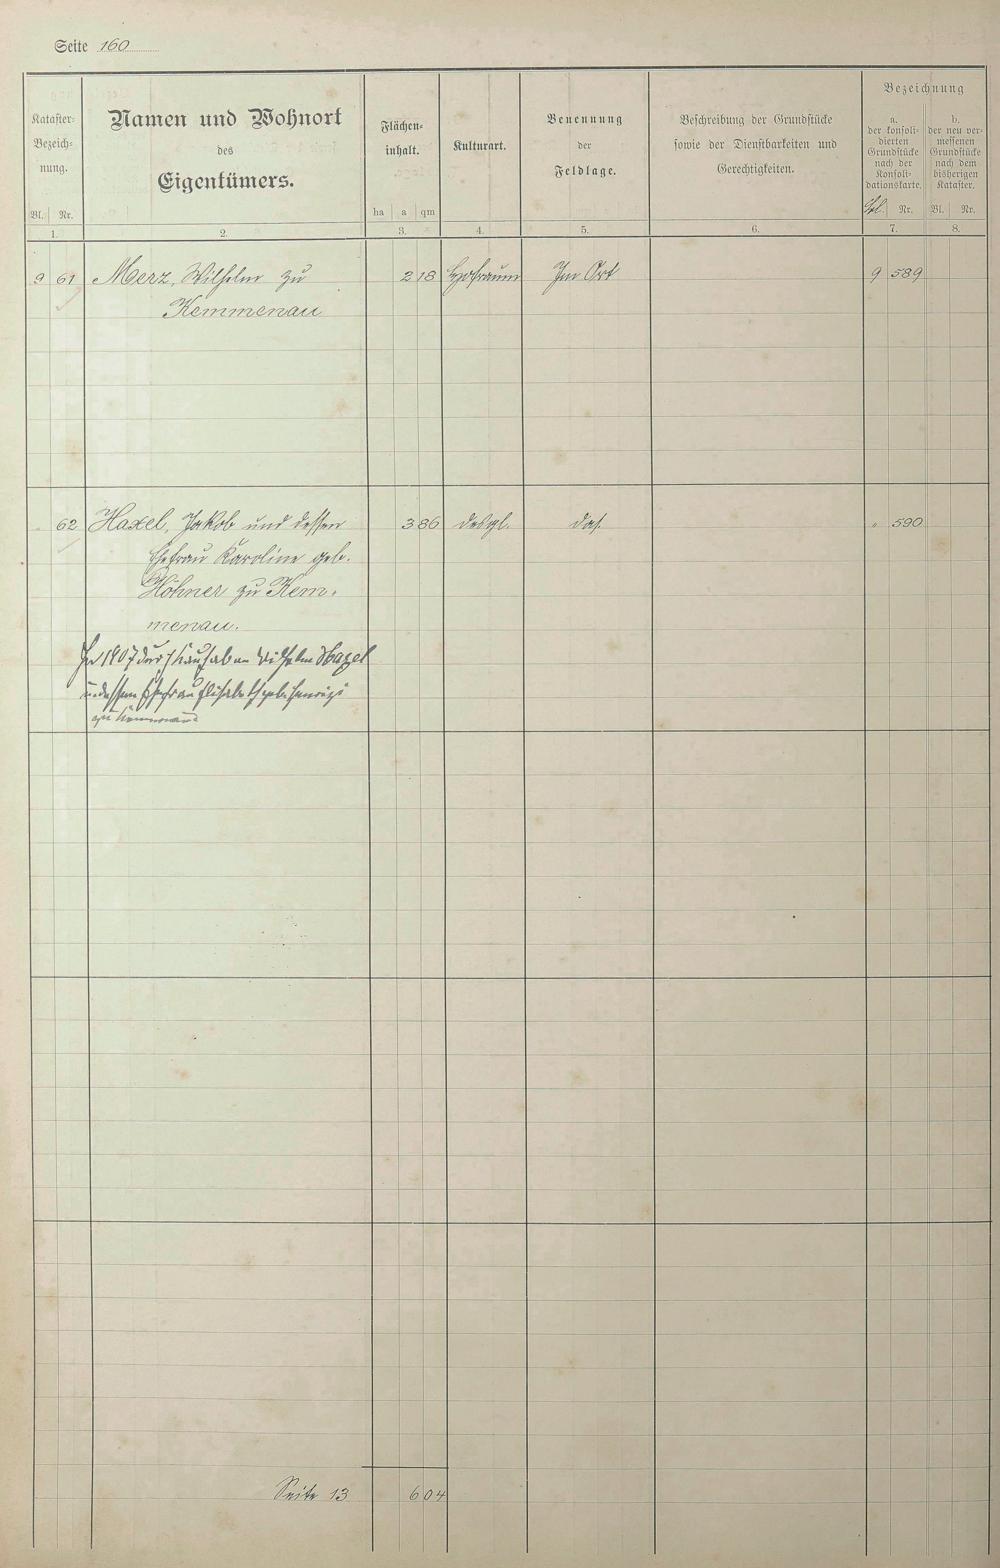 Seite 160
Kataster-
Bezeich-
nung.
Bl. Nr.
1.
Namen und Wohnort
des
Eigentümers.
2.
Flächen-
inhalt.
ha a qm
3.
Kulturart.
4.
Benennung
der
Feldlage.
5.
Beschreibung der Grundstücke
sowie der Dienstbarkeiten und
Gerechtigkeiten.
6.
Bezeichnung
a.
der konsoli-
dierten
Grundstücke
nach der
Konsoli-
dationskarte.
Bl. Nr.
7.
b.
der neu ver-
messenen
Grundstücke
nach dem
bisherigen
Kataster.
Bl. Nr.
8.
9 61 Merz, Wilhelm zu 2 18 Hofraum Im Ort 9 589
Kemmenau
62 Haxel, Jakob und dessen 3 86 desgl. das. " 590
Ehefrau Karoline geb.
Höhner zu Kem-
menau.
In 1907 durch Kauf ab an Wilhelm Haxel
u. dessen Ehefrau Elisabeth geb.
zu Kemmenau
Seite 13 6 04